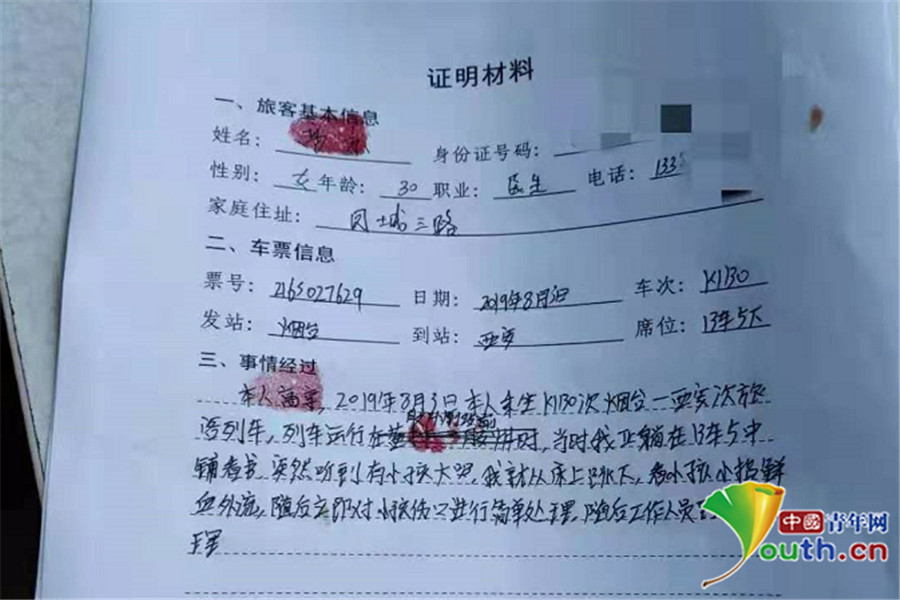 证明材料
一、旅客基本信息
姓名： 身份证号码：
性别： 女 年龄： 30 职业： 医生 电话： 133
家庭住址： 凤城三路
二、车票信息
票号： Z165027629 日期： 2019年8月3日 车次： K1130
发站： 烟台 到站： 西安 席位： 13车5下
三、事情经过
本人 2019年8月3日本人乘坐K1130次烟台一西安次旅
客列车，列车运行在 时，当时我正躺在13车5中
铺看书，突然听到有小孩大哭，我就从床上跳下，看小孩小指鲜
血外流，随后立即对小孩伤口进行简单处理，随后工作人员
理
中国青年网
Youth.cn